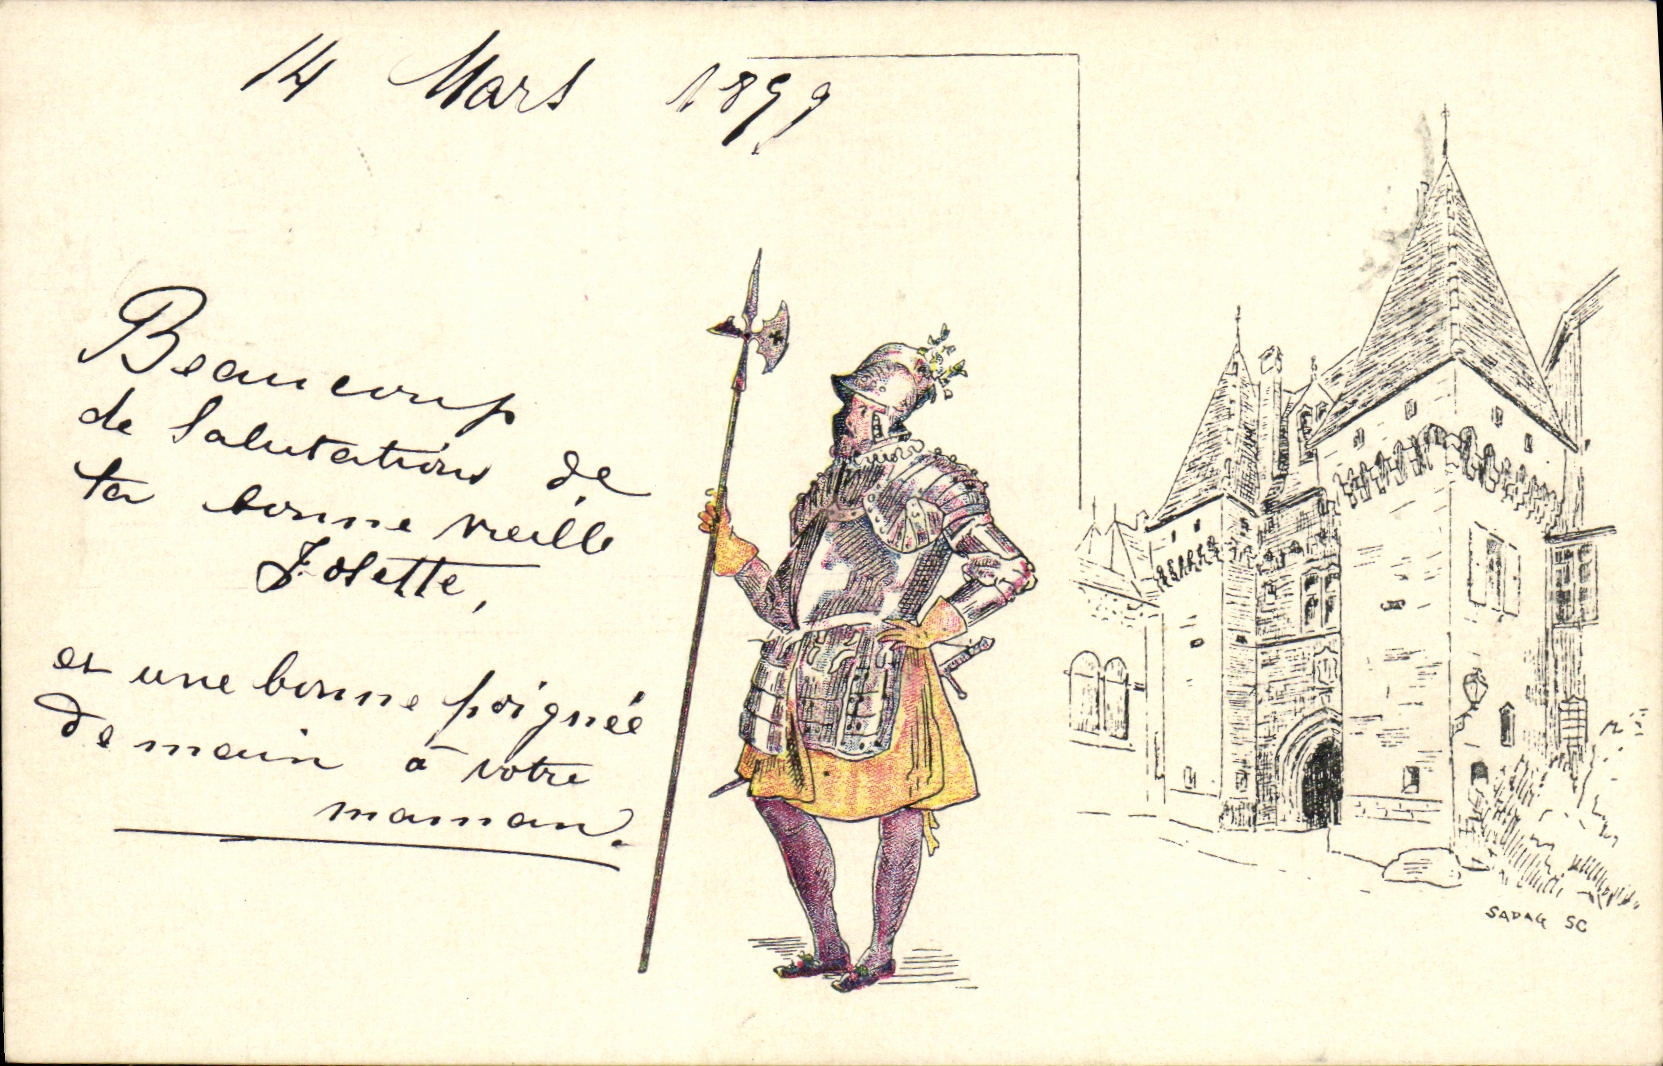 14 Mars 1899
Beaucoup
de Salutations de
ta bonne vieille
Iolette,
et une bonne poignée
de main à votre
maman.
SADAG SC